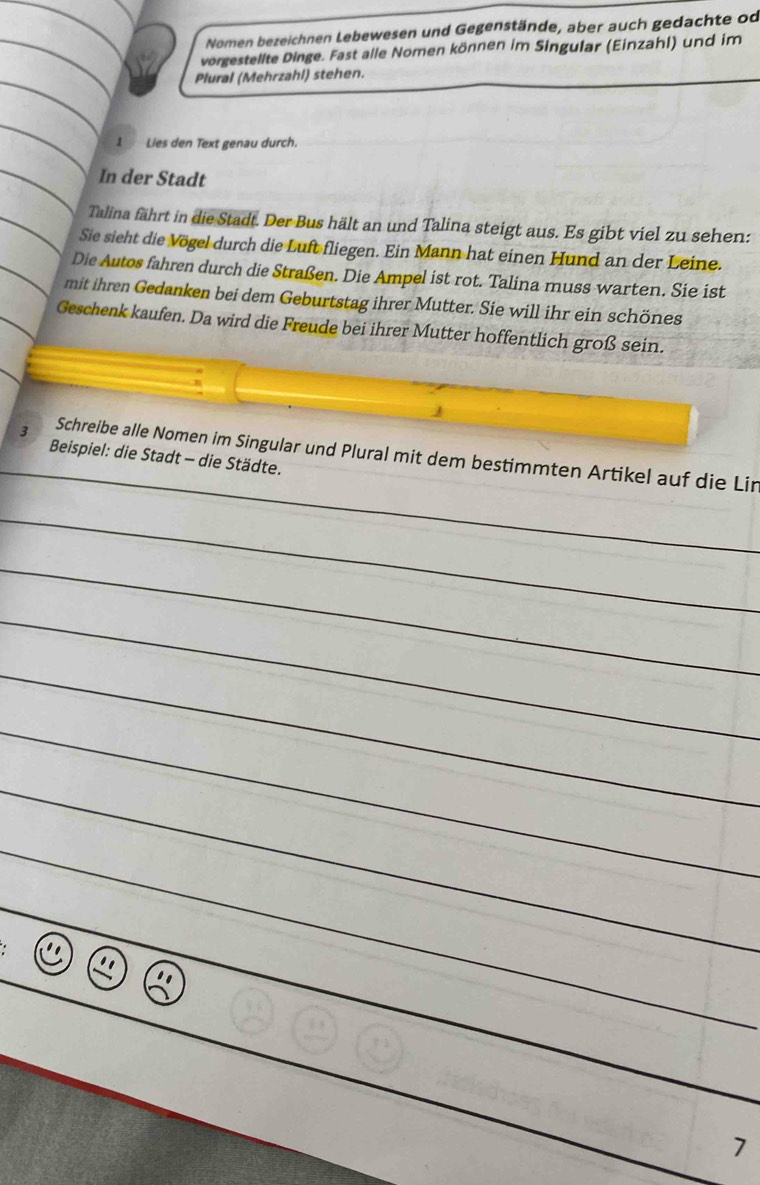 Nomen bezeichnen Lebewesen und Gegenstände, aber auch gedachte od
vorgestellte Dinge. Fast alle Nomen können im Singular (Einzahl) und im
Plural (Mehrzahl) stehen.
1 Lies den Text genau durch.
In der Stadt
Talina fährt in die Stadt. Der Bus hält an und Talina steigt aus. Es gibt viel zu sehen:
Sie sieht die Vögel durch die Luft fliegen. Ein Mann hat einen Hund an der Leine.
Die Autos fahren durch die Straßen. Die Ampel ist rot. Talina muss warten. Sie ist
mit ihren Gedanken bei dem Geburtstag ihrer Mutter. Sie will ihr ein schönes
Geschenk kaufen. Da wird die Freude bei ihrer Mutter hoffentlich groß sein.
3 Schreibe alle Nomen im Singular und Plural mit dem bestimmten Artikel auf die Lin
Beispiel: die Stadt – die Städte.
7